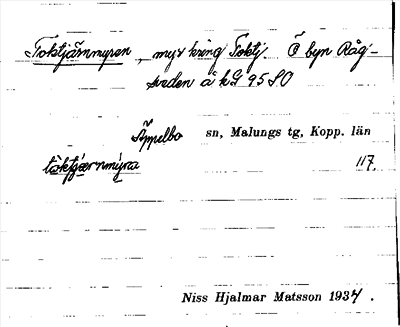 Toktjärnmyren, myr kring Toktj Ö byn Råg-
sveden å kG 95 SO
Äppelbo sn, Malungs tg, Kopp. län
tòktjærnmýra 117.
Niss Hjalmar Matsson 1934.